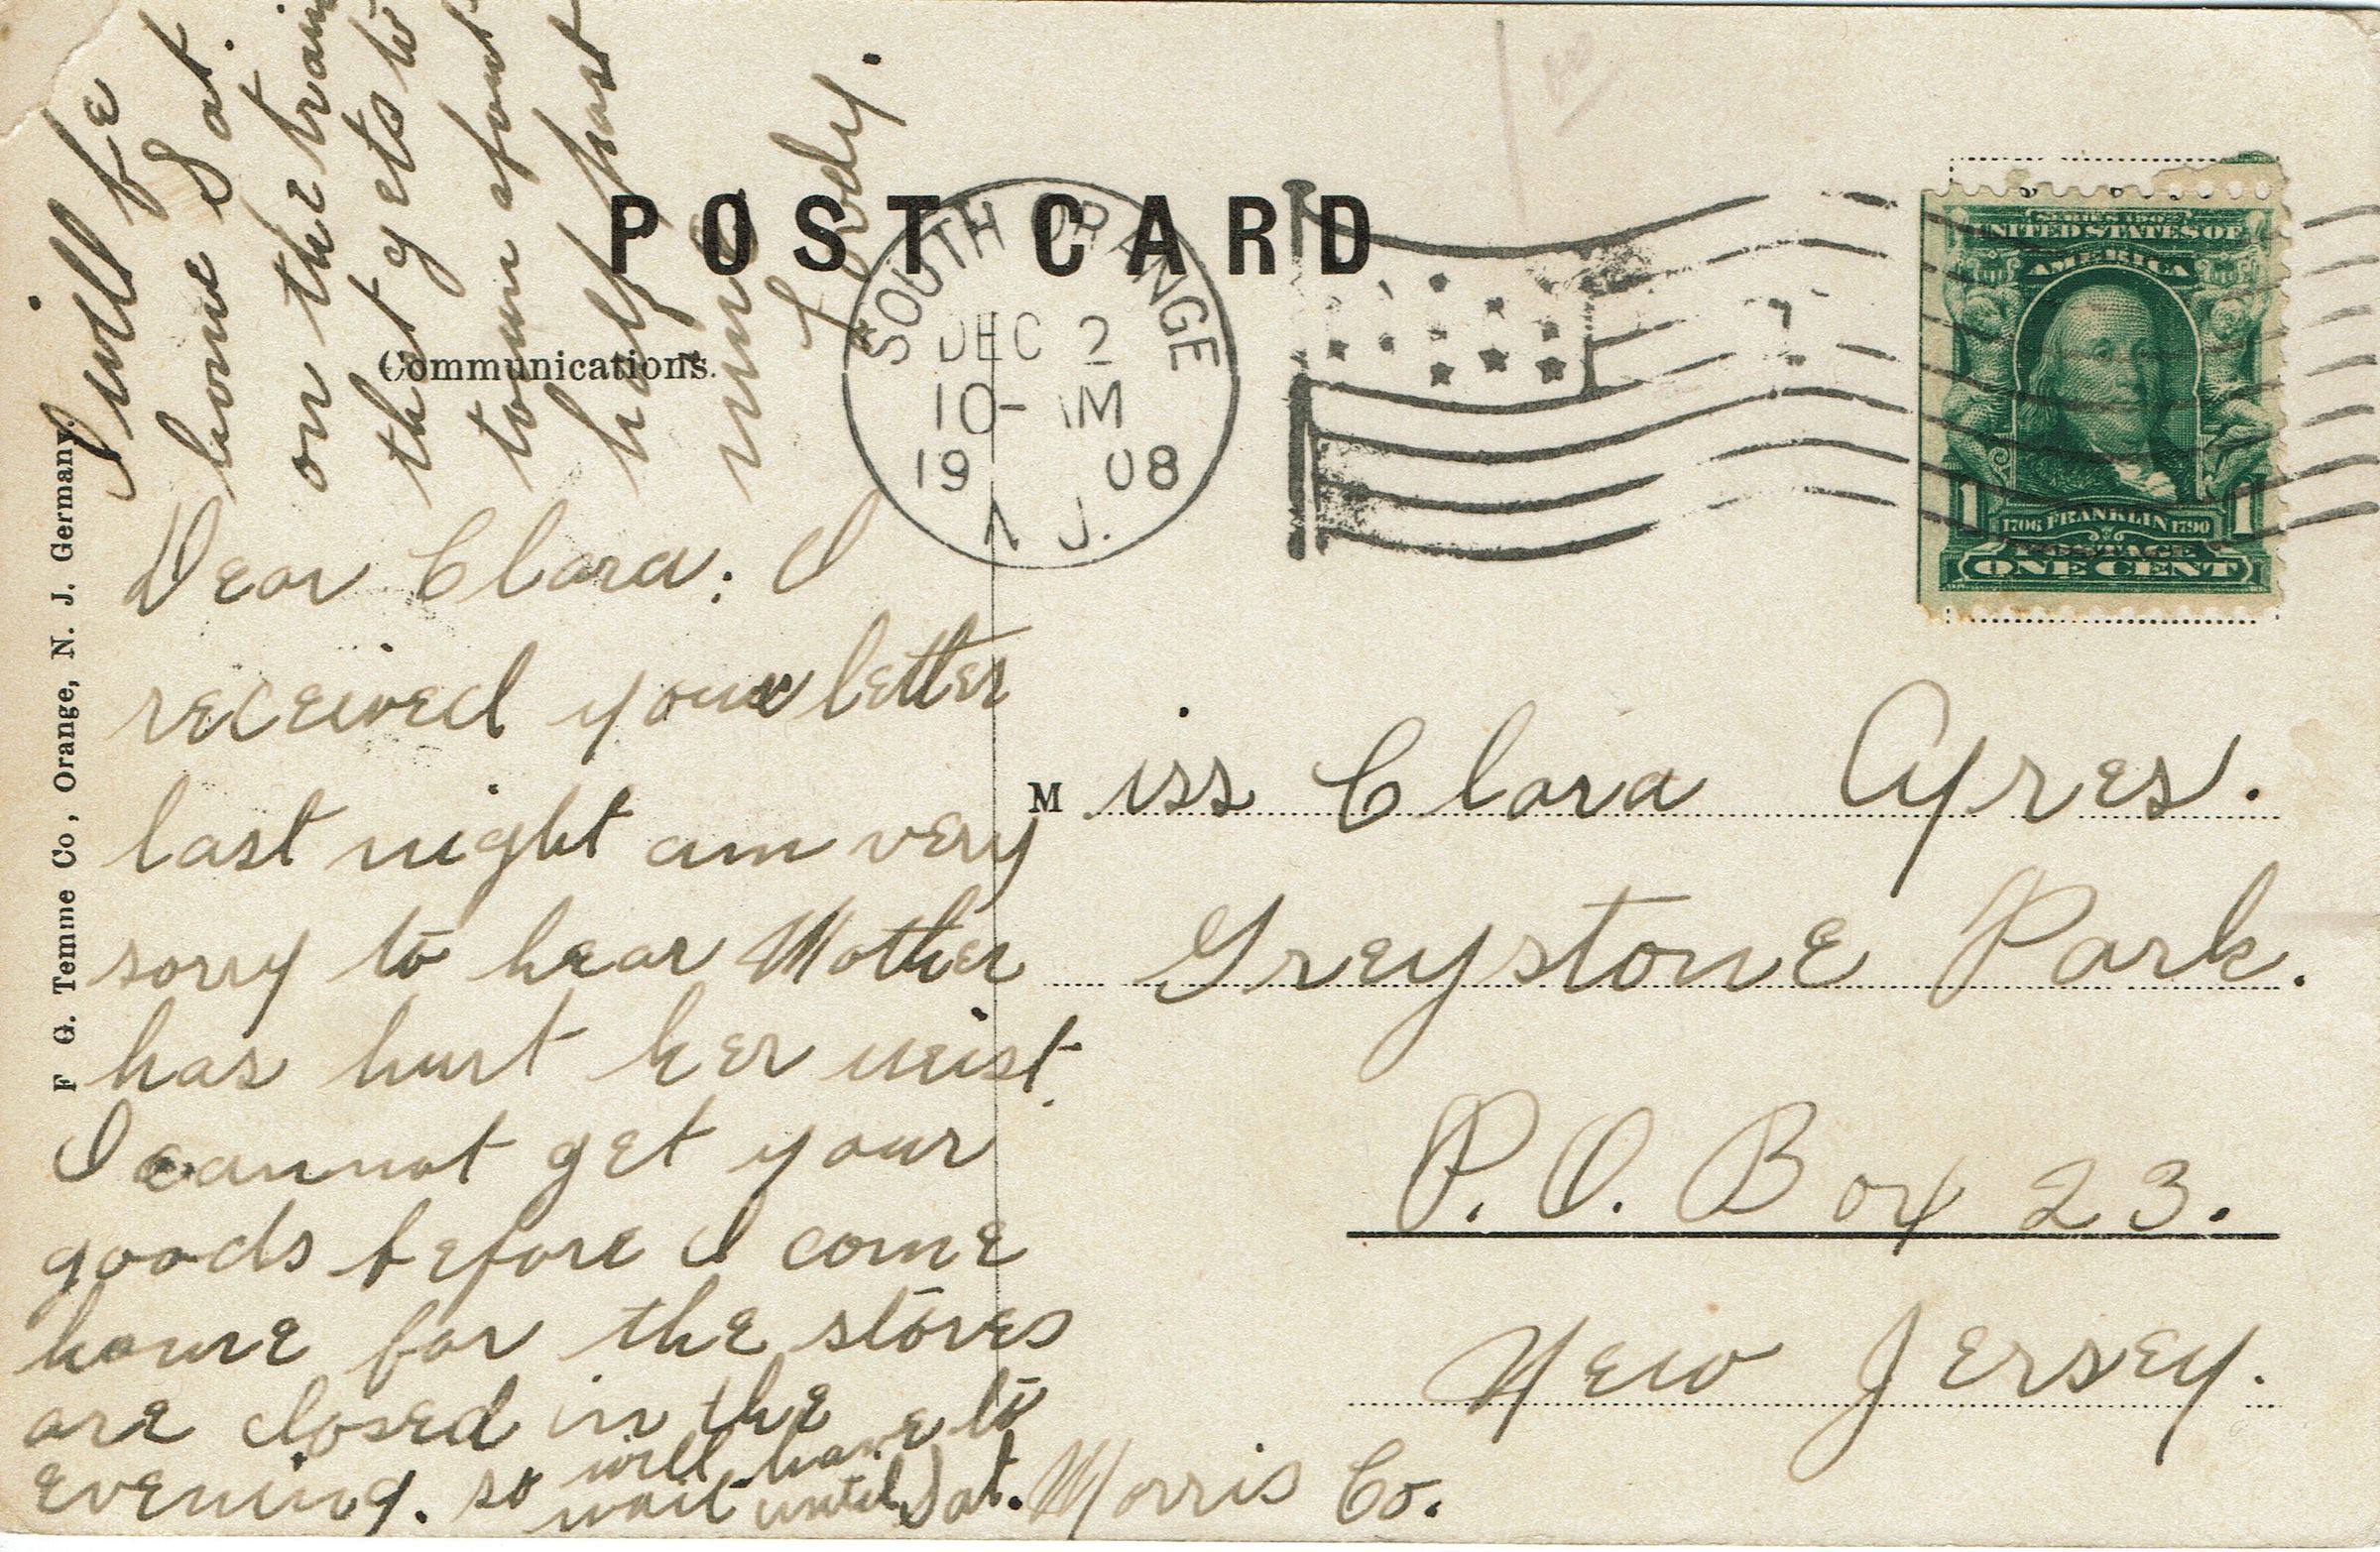 POST CARD
Communications.
F G. Temme Co, Orange, N. J. Germany.
SOUTH ORANGE
DEC 2
10- AM
1908
N. J.
SERIES 1902
UNITED STATES OF
AMERICA
1706 FRANKLIN 1790
POSTAGE
1 1
ONE CENT
Dear Clara: I
received your letter
last night am very
sorry to hear Mother
has hurt her wist.
I cannot get your
goods before I come
home for the stores
are closed in the
evening. so will have to
wait until Sat.
I will be
home Sat.
on the train
that gets to
town about
half past
nine
Lody.
Miss Clara Ayres.
Greystone Park.
P. O. Box 23.
New Jersey.
Morris Co.